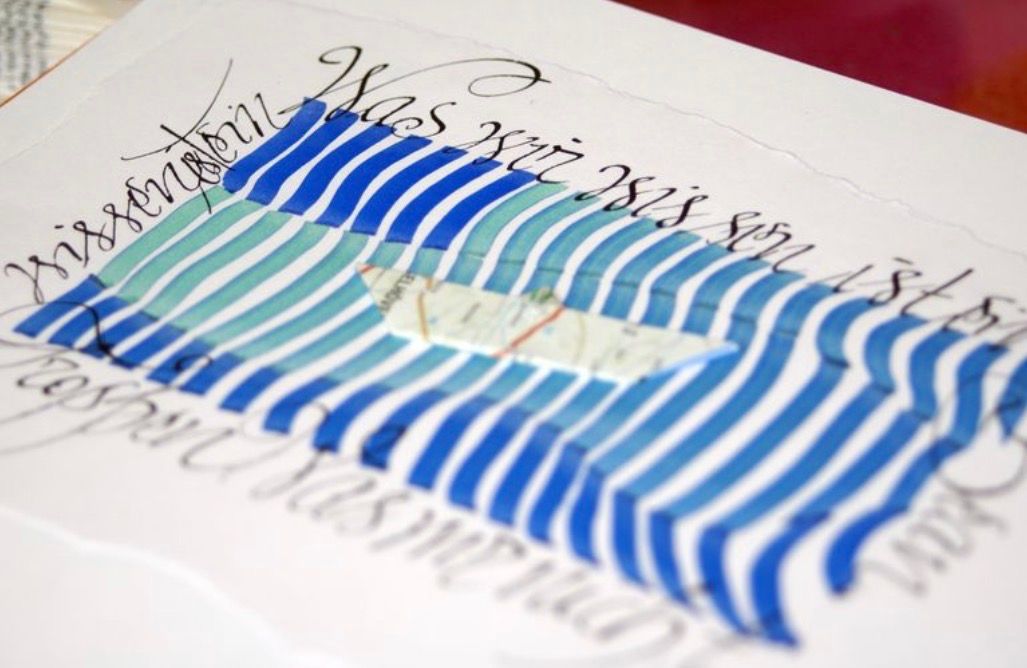 Was wir wissen ist ein
Tropfen Was wir
wissen ist ein